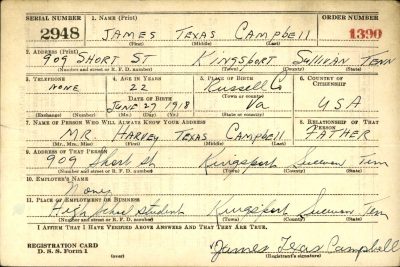 SERIAL NUMBER 1. Name (Print) ORDER NUMBER
2948 JAMES TEXAS CAMPBELL 1390
(First) (Middle) (Last)
2. Address (Print)
909 SHORT ST KINGSPORT SULLIVAN TENN
(Number and street or R. F. D. number) (Town) (County) (State)
3. Telephone 4. Age in Years 5. Place of Birth 6. Country of Citizenship
NONE 22 Russell Co
Date of Birth (Town or county)
JUNE 27 1918 Va USA
(Mo.) (Day) (Yr.) (State or country)
7. Name of Person Who Will Always Know Your Address 8. Relationship of That Person
MR. HARVEY TEXAS CAMPBELL FATHER
(Mr., Mrs., Miss) (First) (Middle) (Last)
9. Address of That Person
909 Short St Kingsport Tenn
(Number and street or R. F. D. number) (Town) (County) (State)
10. Employer's Name
None
11. Place of Employment or Business
High School Student Kingsport Tenn
(Number and street or R. F. D. number) (Town) (County) (State)
I Affirm That I Have Verified Above Answers and That They Are True.
REGISTRATION CARD
D. S. S. Form 1 (over) James Texas Campbell
(Registrant's signature)